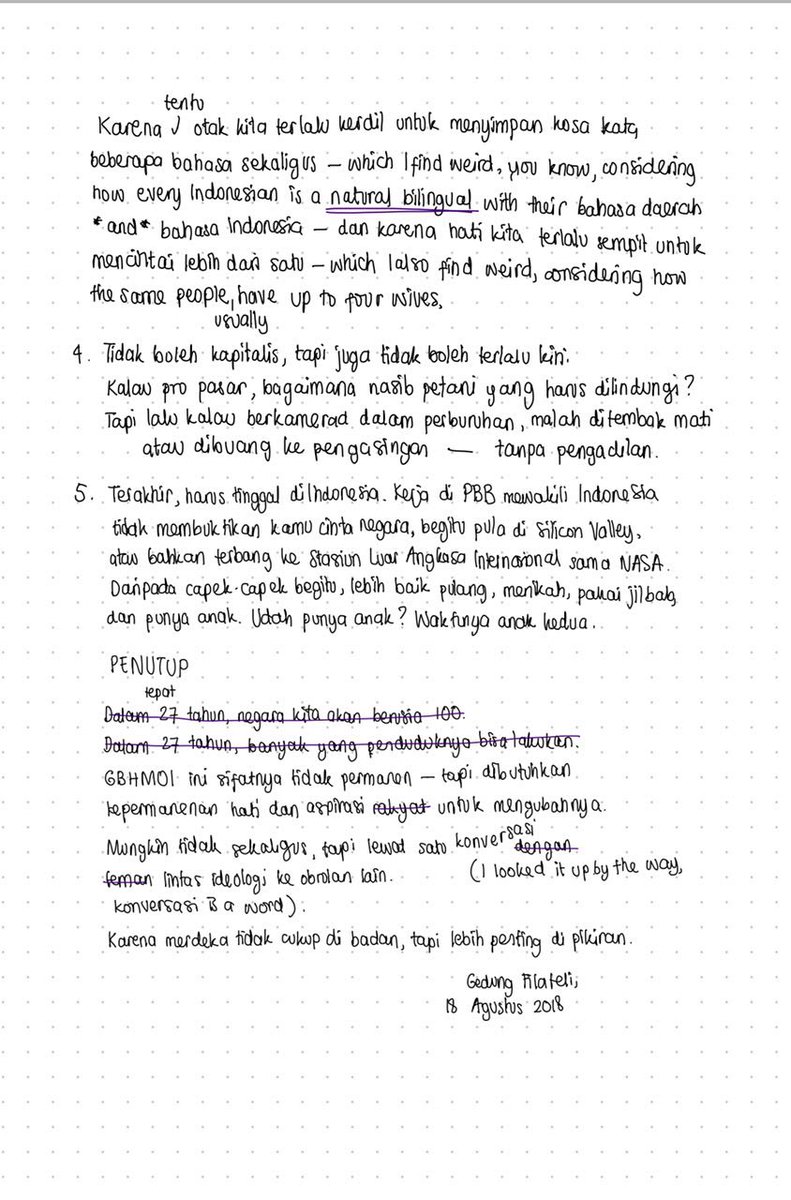 tentu
Karena √ otak kita terlalu kerdil untuk menyimpan kosa kata
beberapa bahasa sekaligus – which I find weird, you know, considering
how every Indonesian is a natural bilingual with their bahasa daerah
*and* bahasa Indonesia – dan karena hati kita terlalu sempit untuk
mencintai lebih dari satu – which I also find weird, considering how
the same people, have up to four wives.
usually
4. Tidak boleh kapitalis, tapi juga tidak boleh terlalu kiri.
Kalau pro pasar, bagaimana nasib petani yang harus dilindungi?
Tapi lalu kalau berkamerad dalam perburuhan, malah ditembak mati
atau dibuang ke pengasingan — tanpa pengadilan.
5. Terakhir, harus tinggal di Indonesia. Kerja di PBB mewakili Indonesia
tidak membuktikan kamu cinta negara, begitu pula di Silicon Valley,
atau bahkan terbang ke Stasiun Luar Angkasa Internasional sama NASA.
Daripada capek-capek begitu, lebih baik pulang, menikah, pakai jilbab,
dan punya anak. Udah punya anak? Waktunya anak kedua.
PENUTUP
tepat
Dalam 27 tahun, negara kita akan berusia 100.
Dalam 27 tahun, banyak yang penduduknya bisa lakukan.
GBHMOI ini sifatnya tidak permanen – tapi dibutuhkan
kepermanenan hati dan aspirasi rakyat untuk mengubahnya.
Mungkin tidak sekaligus, tapi lewat satu konversasi dengan
teman lintas ideologi ke obrolan lain. (I looked it up by the way,
konversasi is a word).
Karena merdeka tidak cukup di badan, tapi lebih penting di pikiran.
Gedung Filateli,
18 Agustus 2018